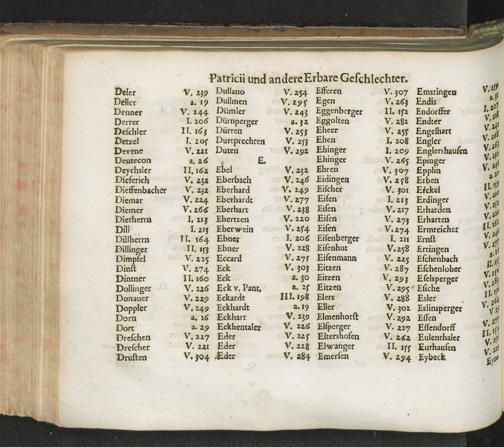 Patricii und andere Erbare Geschlechter.
Deler V. 239
Deller a. 19
Denner V. 244
Derrer I. 206
Deschler II. 163
Detzel I. 205
Devene V. 221
Deutecon a. 26
Deychsler II, 162
Dieferich V. 232
Dieffenbacher V. 232
Diemar V. 224
Diemer V. 266
Dietherrn I. 213
Dill I. 213
Dillherrn II. 164
Dillinger II. 153
Dimpfel V. 225
Dinst V. 274
Dintner II. 160
Dollinger V. 226
Donauer V. 229
Doppler V. 249
Dorn a. 16
Dort a. 29
Dreschen V. 227
Drescher V. 221
Drusten V. 304
Dullano V. 254
Dullmen V. 295
Dümler V. 243
Dürnperger a. 32
Dürren V. 253
Durrprechten V. 253
Duten V. 292
E.
Ebel V. 232
Eberbach V. 246
Eberhard V. 249
Eberhardt V. 277
Eberhart V. 238
Ebertzen V. 220
Eberwein V. 254
Ebner I. 206
Ebner V. 228
Eccard V. 275
Eck V. 303
Eck a. 30
Eck v. Pant, a. 25
Eckardt III. 198
Eckhardt a. 19
Eckhart V. 239
Eckhentaler V. 226
Eder V. 225
Eder V. 228
Æder V. 284
Efferen V. 307
Egen V. 263
Eggenberger II. 152
Eggolten V. 282
Eheer V. 255
Ehen I. 208
Ehinger I. 209
Ehinger V. 265
Ehren V. 307
Eidingen V. 258
Eischer V. 301
Eisen I. 213
Eisen V. 217
Eisen V. 273
Eisen V. 274
Eisenberger I. 211
Eisenhut V. 258
Eisenmann V. 225
Eitzen V. 287
Eitzen V. 293
Eitzen V. 295
Elers V. 288
Eller V. 302
Elmenhorst V. 292
Elsperger V. 227
Eltershofen V. 262
Elwanger II. 155
Emersen V. 294
Emstingen
Endis
Endörffer
Endter
Engelhart
Engler
Englershausen
Epinger
Epplin
Erben
Erckel
Erdinger
Erharden
Erharten
Ermreicher
Ernst
Ertingen
Eschenbach
Eschenloher
Eschperger
Esiche
Esler
Eslinsperger
Essen
Essendorff
Eulenthaler
Eurhausen
Eybeck